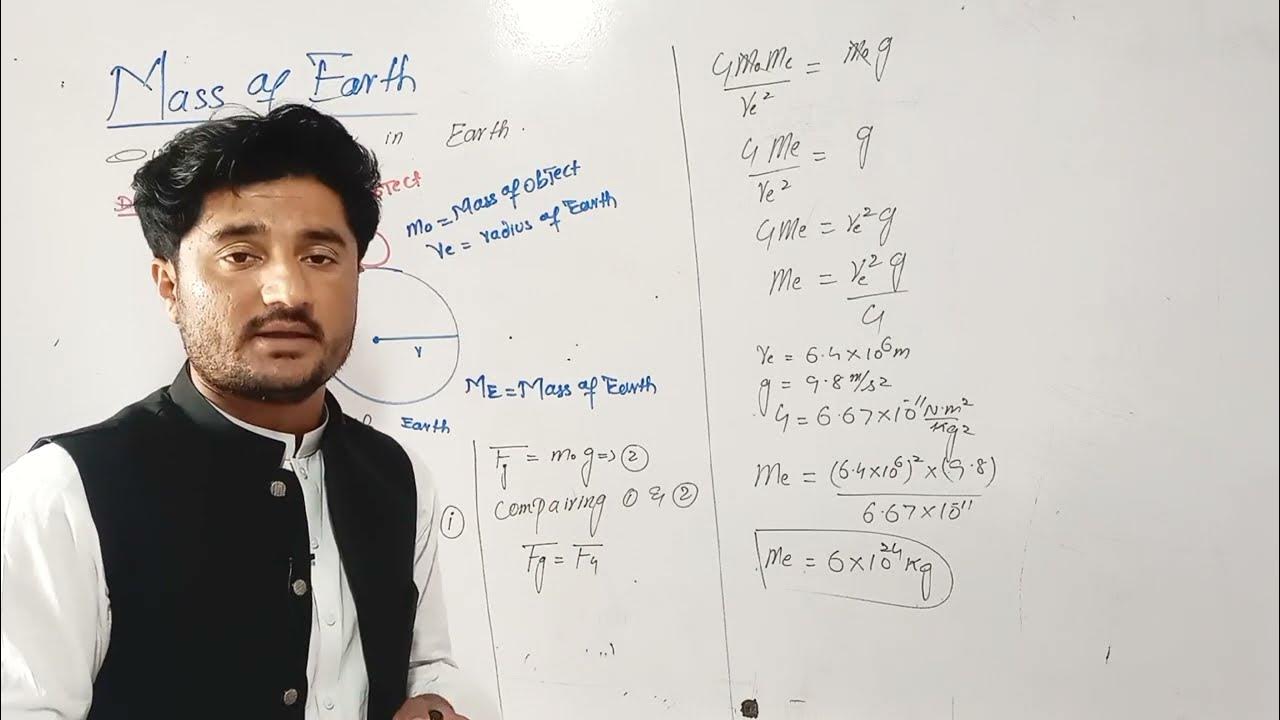 Mass of Earth
in Earth.
mo = Mass of ObJect
re = radius of Earth
r
ME = Mass of Earth
Earth
i
Fg = mo g => 2
Comparing 1 & 2
Fg = FG
G mo Me / re² = mo g
G Me / re² = g
G Me = re² g
Me = re² g / G
re = 6.4 × 10⁶ m
g = 9.8 m/s2
G = 6.67 × 10⁻¹¹ N·m² / Kg2
Me = (6.4 × 10⁶)² × (9.8) / 6.67 × 10¹¹
Me = 6 × 10²⁴ Kg